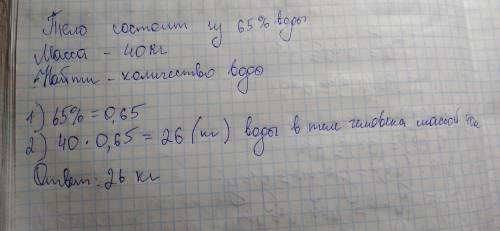 Тело состоит из 65% воды
Масса - 40 кг
Найти - количество воды
1) 65% = 0,65
2) 40 · 0,65 = 26 (кг) воды в теле человека массой 40кг
Ответ: 26 кг